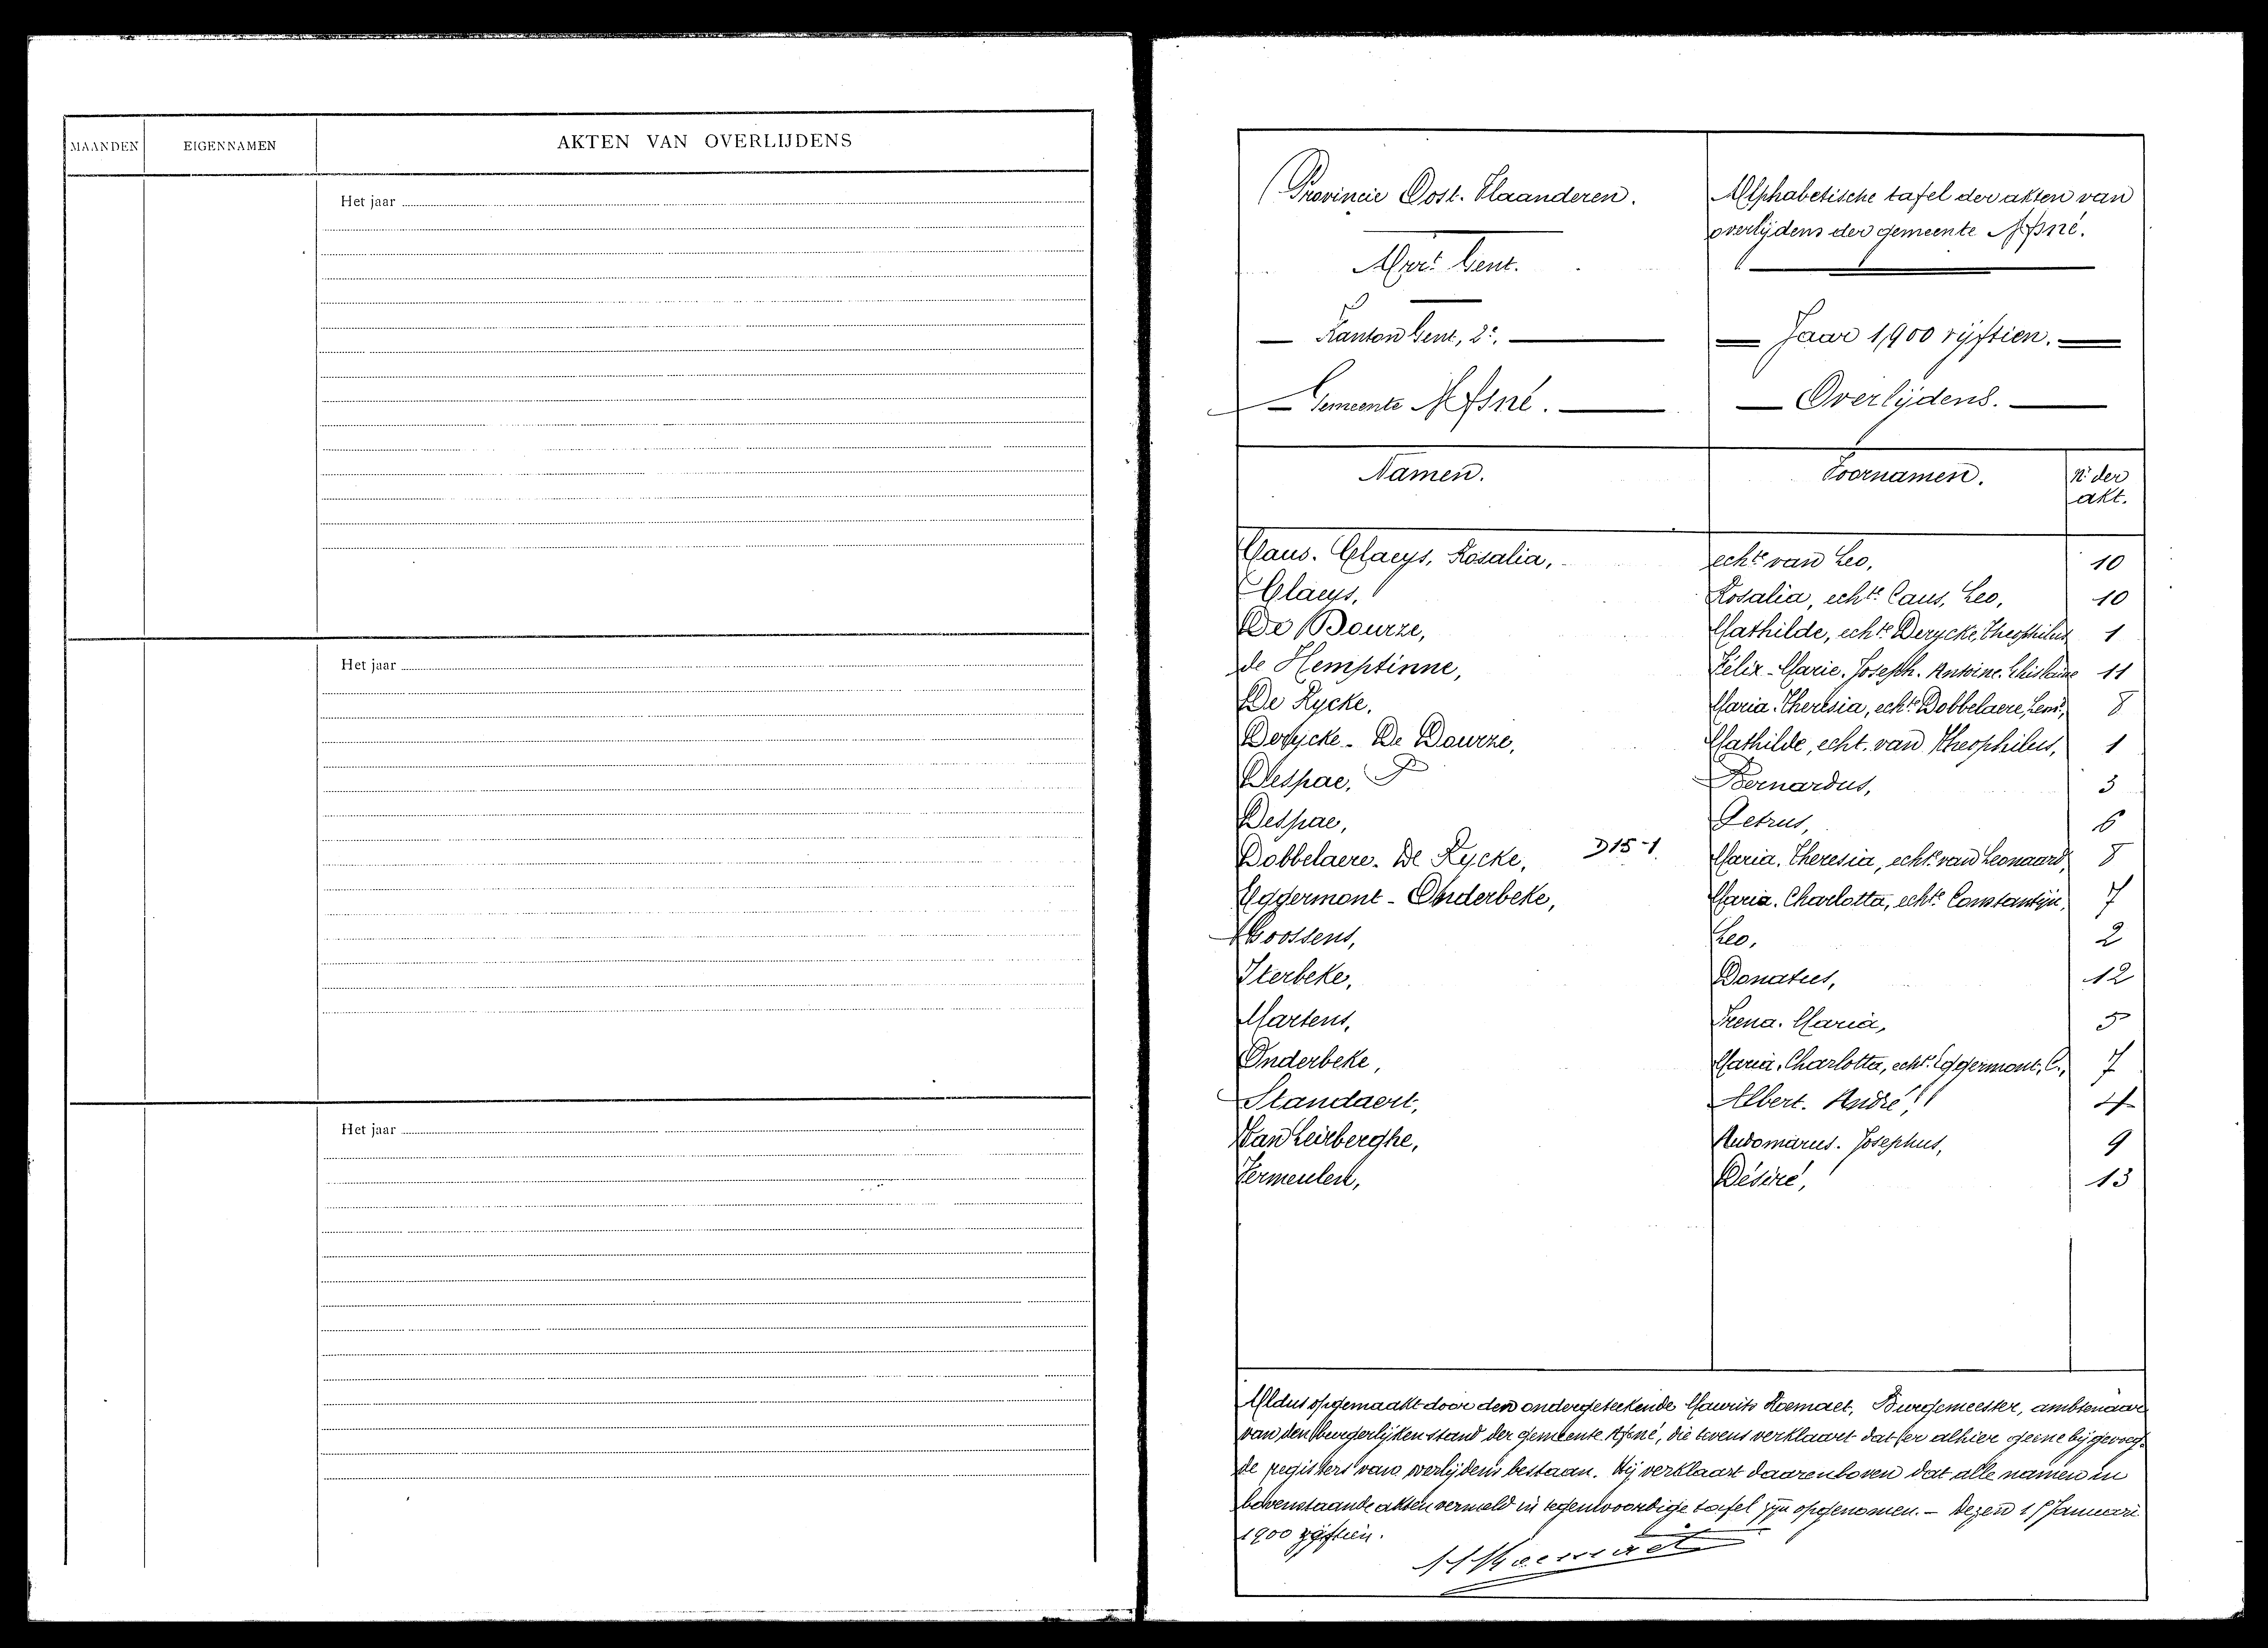 MAANDEN EIGENNAMEN AKTEN VAN OVERLIJDENS
Het jaar
Het jaar
Het jaar
Provincie Oost-Vlaanderen.
Arr.t Gent.
Kanton Gent, 2e.
Gemeente Afsné.
Alphabetische tafel der akten van
overlijdens der gemeente Afsné.
Jaar 1900 vijftien.
Overlijdens.
Namen. Voornamen. N.r der
akt.
Caus. Claeys, Rosalia, echt.e van Leo, 10
Claeys, Rosalia, echt.e Caus, Leo, 10
De Bourze, Mathilde, echt.e Derycke, Theophilus 1
de Hemptinne, Félix-Marie. Joseph. Antoine. Ghislaine 11
De Rycke, Maria. Theresia, echt.e Dobbelaere, Leon.d, 8
Derycke - De Bourze, Mathilde, echt. van Theophilus, 1
Despae, Bernardus, 3
Despae, Petrus, 6
Dobbelaere. De Rycke, D 15-1. Maria. Theresia, echt.e van Leonaard, 8
Eggermont - Onderbeke, Maria. Charlotta, echt.e Constantijn, 7
Goossens, Leo, 2
Iterbeke, Donatus, 12
Martens, Irena. Maria, 5
Onderbeke, Maria. Charlotta, echt.e Eggermont, C., 7
Standaert, Albert. André, 4
Van Leirberghe, Audomarus. Josephus, 9
Vermeulen, Désiré, 13
Aldus opgemaakt door den ondergeteekende Maurits Hoemaet, Burgemeester, ambtenaar
van den burgerlijken stand der gemeente Afsné, die tevens verklaart dat er alhier geene bijgevoeg-
de registers van overlijdens bestaan. Hij verklaart daarenboven dat alle namen in
bovenstaande akten vermeld in tegenwoordige tafel zijn opgenomen. - Dezen 1 Januari
1900 vijftien.